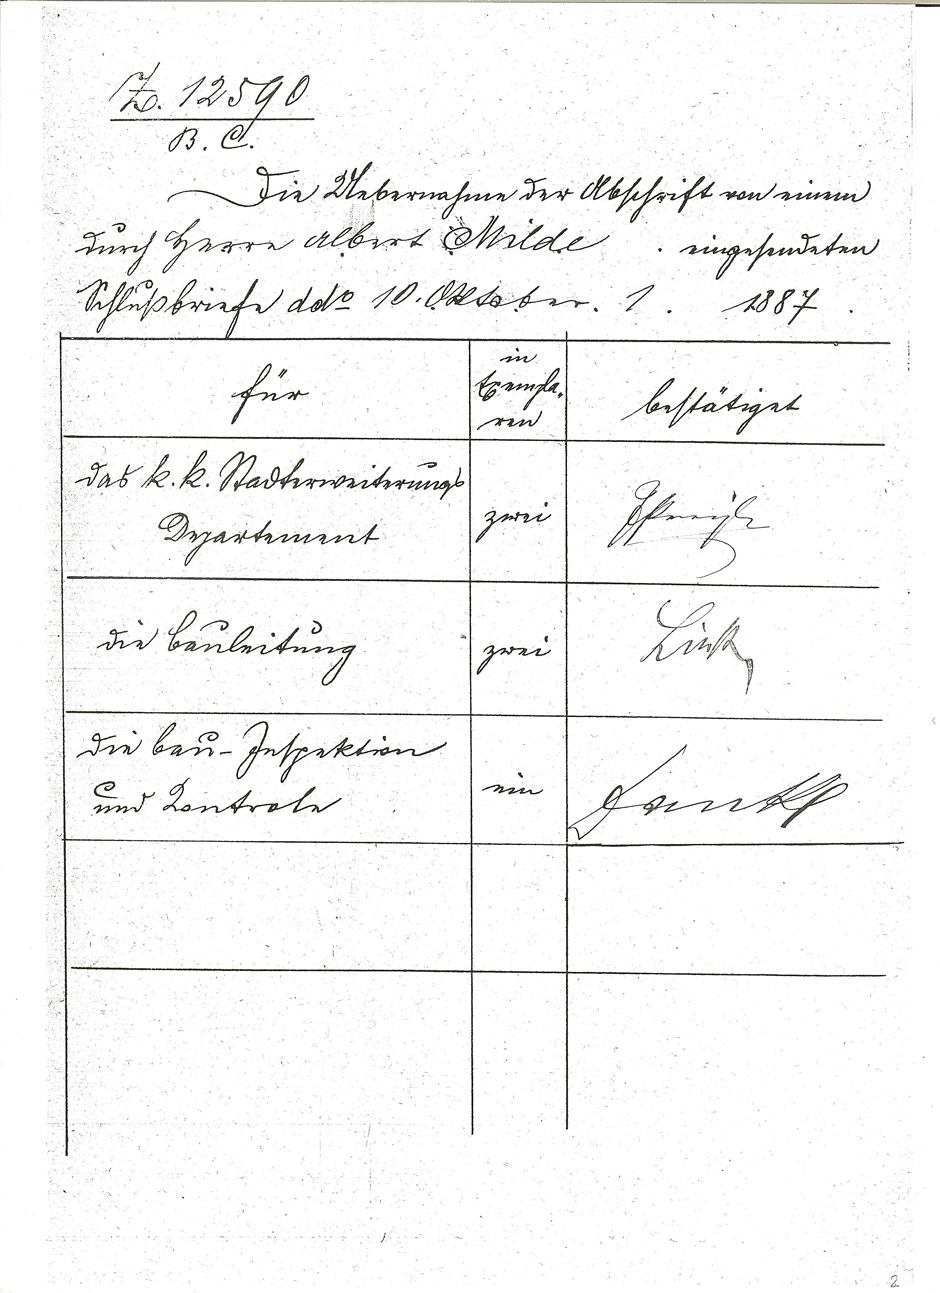 Z. 12590
B. C.
Die Uebernahme der Abschrift von einem
durch Herrn Albert Milde eingesendeten
Schlußbriefe ddo 10. Oktober. 1. 1887.
für
in
Exempla-
ren
bestätiget
das k. k. Stadterweiterungs
Departement
zwei
die Bauleitung
zwei
Link
die Bau-Inspektion
und Kontrole
ein
2